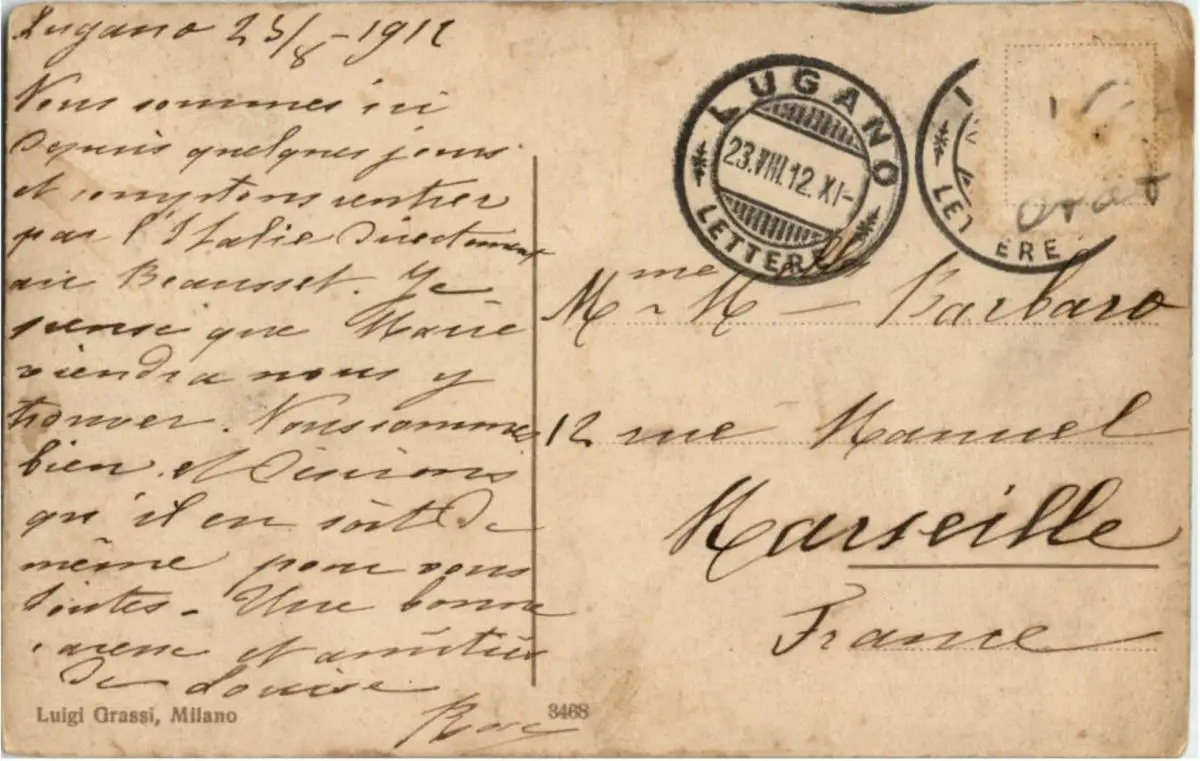 Lugano 23/8 - 1912
Nous sommes ici
depuis quelques jours
et comptons rentrer
par l'Italie directement
au Beausset. Je
pense que Marie
viendra nous y
trouver. Nous sommes
bien et désirons
qu'il en soit de
même pour vous
toutes. Une bonne
et amitiés
de Louise
Luigi Grassi, Milano
3468
LUGANO
23.VIII.12. XI-
LETTERE
Mme M Barbaro
12 rue Manuel
Marseille
France